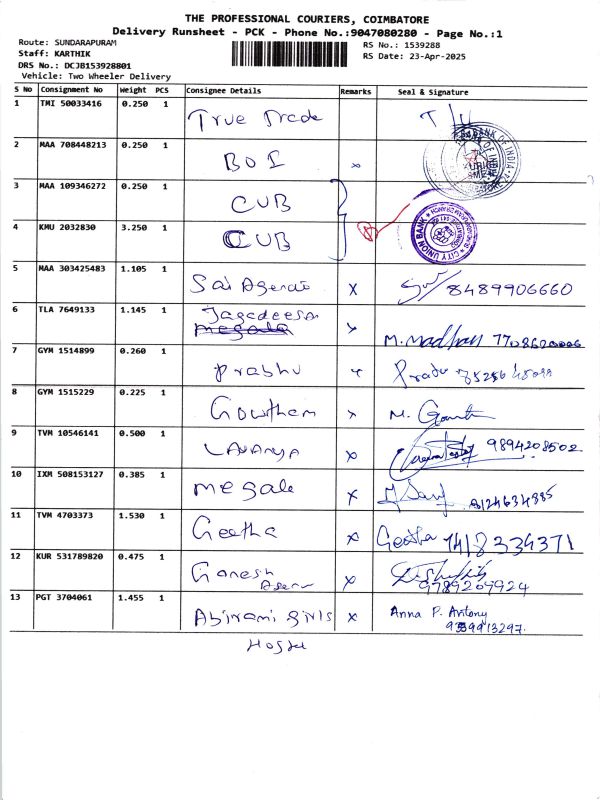 THE PROFESSIONAL COURIERS, COIMBATORE
Delivery Runsheet - PCK - Phone No.:9047080280 - Page No.:1
Route: SUNDARAPURAM
RS No.: 1539288
Staff: KARTHIK
RS Date: 23-Apr-2025
DRS No.: DCJB153928801
Vehicle: Two Wheeler Delivery
S No Consignment No Weight PCS Consignee Details Remarks Seal & Signature
1 TMI 50033416 0.250 1 True Trade
2 MAA 708448213 0.250 1 BOI x BANK OF INDIA
3 MAA 109346272 0.250 1 CUB
4 KMU 2032830 3.250 1 CUB CITY UNION BANK
5 MAA 303425483 1.105 1 Sai Agencies x 8489906660
6 TLA 7649133 1.145 1 Jagadeesan x M. Madhan
7 GYM 1514899 0.260 1 Prabhu
8 GYM 1515229 0.225 1 Gowtham x M.
9 TVM 10546141 0.500 1 LAVANYA x 9894208502
10 IXM 508153127 0.385 1 megala x 8124634885
11 TVM 4703373 1.530 1 Geetha x Geetha 7418334371
12 KUR 531789820 0.475 1 Ganesh x 9789209924
13 PGT 3704061 1.455 1 Abirami girls x Anna P. Antony
Hostel